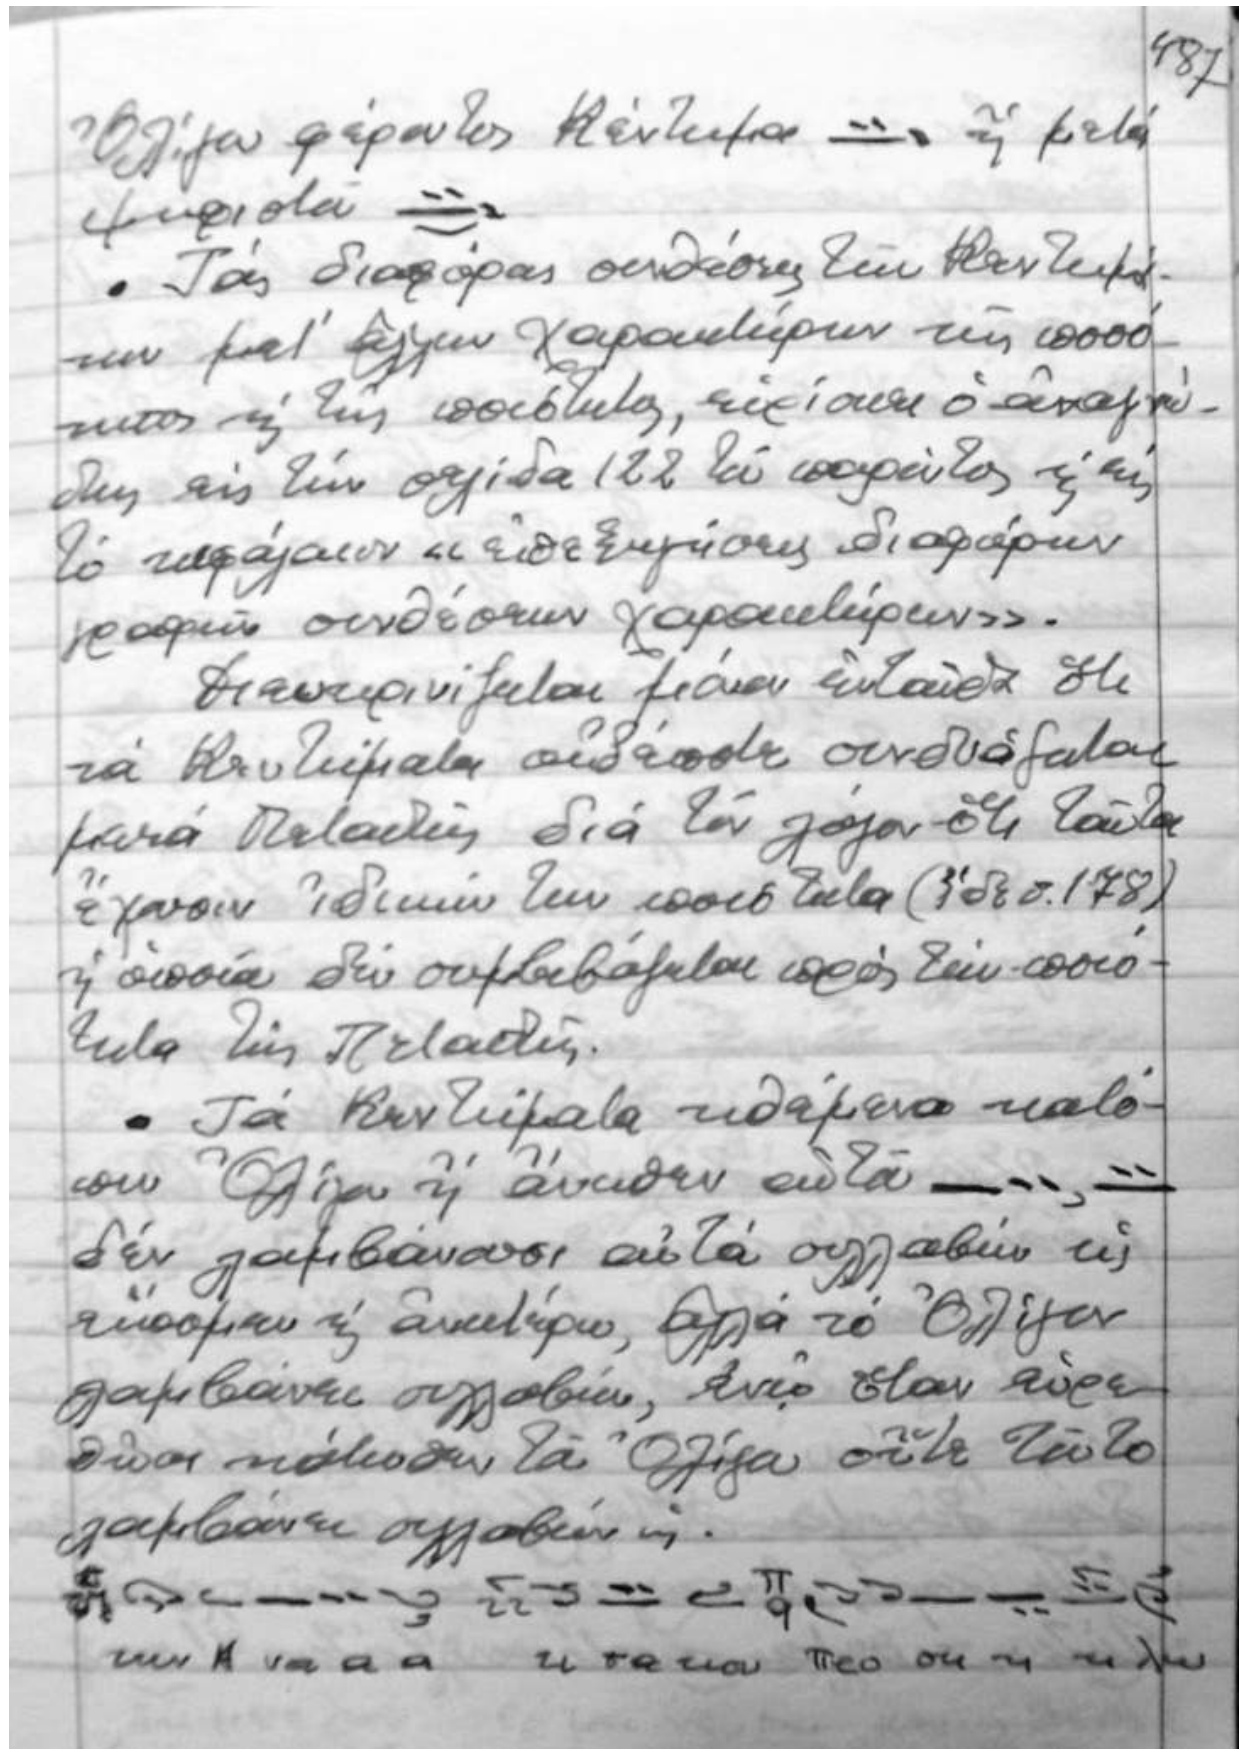 487
Ὀλίγου φέροντος Κέντημα ἤ μετά
ψηφιστά
• Τάς διαφόρας συνθέσεις τῶν Κεντημά-
των μετ' ἄλλων χαρακτήρων τῆς ποσό-
τητος ἤ τῆς ποιότητος, εὑρίσκει ὁ ἀναγνώ-
στης εἰς τήν σελίδα 122 τοῦ παρόντος ἤ εἰς
τό κεφάλαιον «ἐπεξηγήσεις διαφόρων
γραφῶν συνθέσεων χαρακτήρων».
Διευκρινίζεται μόνον ἐνταῦθα ὅτι
τά Κεντήματα οὐδέποτε συνδυάζεται
μετά Πεταστῆς διά τόν λόγον ὅτι ταῦτα
ἔχουσιν ἰδικήν των ποιότητα (ἴδε σ. 178)
ἡ ὁποία δέν συμβιβάζεται πρός τήν ποιό-
τητα τῆς Πεταστῆς.
• Τά Κεντήματα τιθέμενα κατό-
πιν Ὀλίγου ἤ ἄνωθεν αὐτοῦ
δέν λαμβάνουσι αὐτά συλλαβήν ὡς
εἴπομεν ἤ ἀνωτέρω, ἀλλά τό Ὀλίγον
λαμβάνει συλλαβήν, ἐνῷ ὅταν εὑρε-
θῶσι κάτωθεν τοῦ Ὀλίγου οὔτε τοῦτο
λαμβάνει συλλαβήν.
την Α να α α